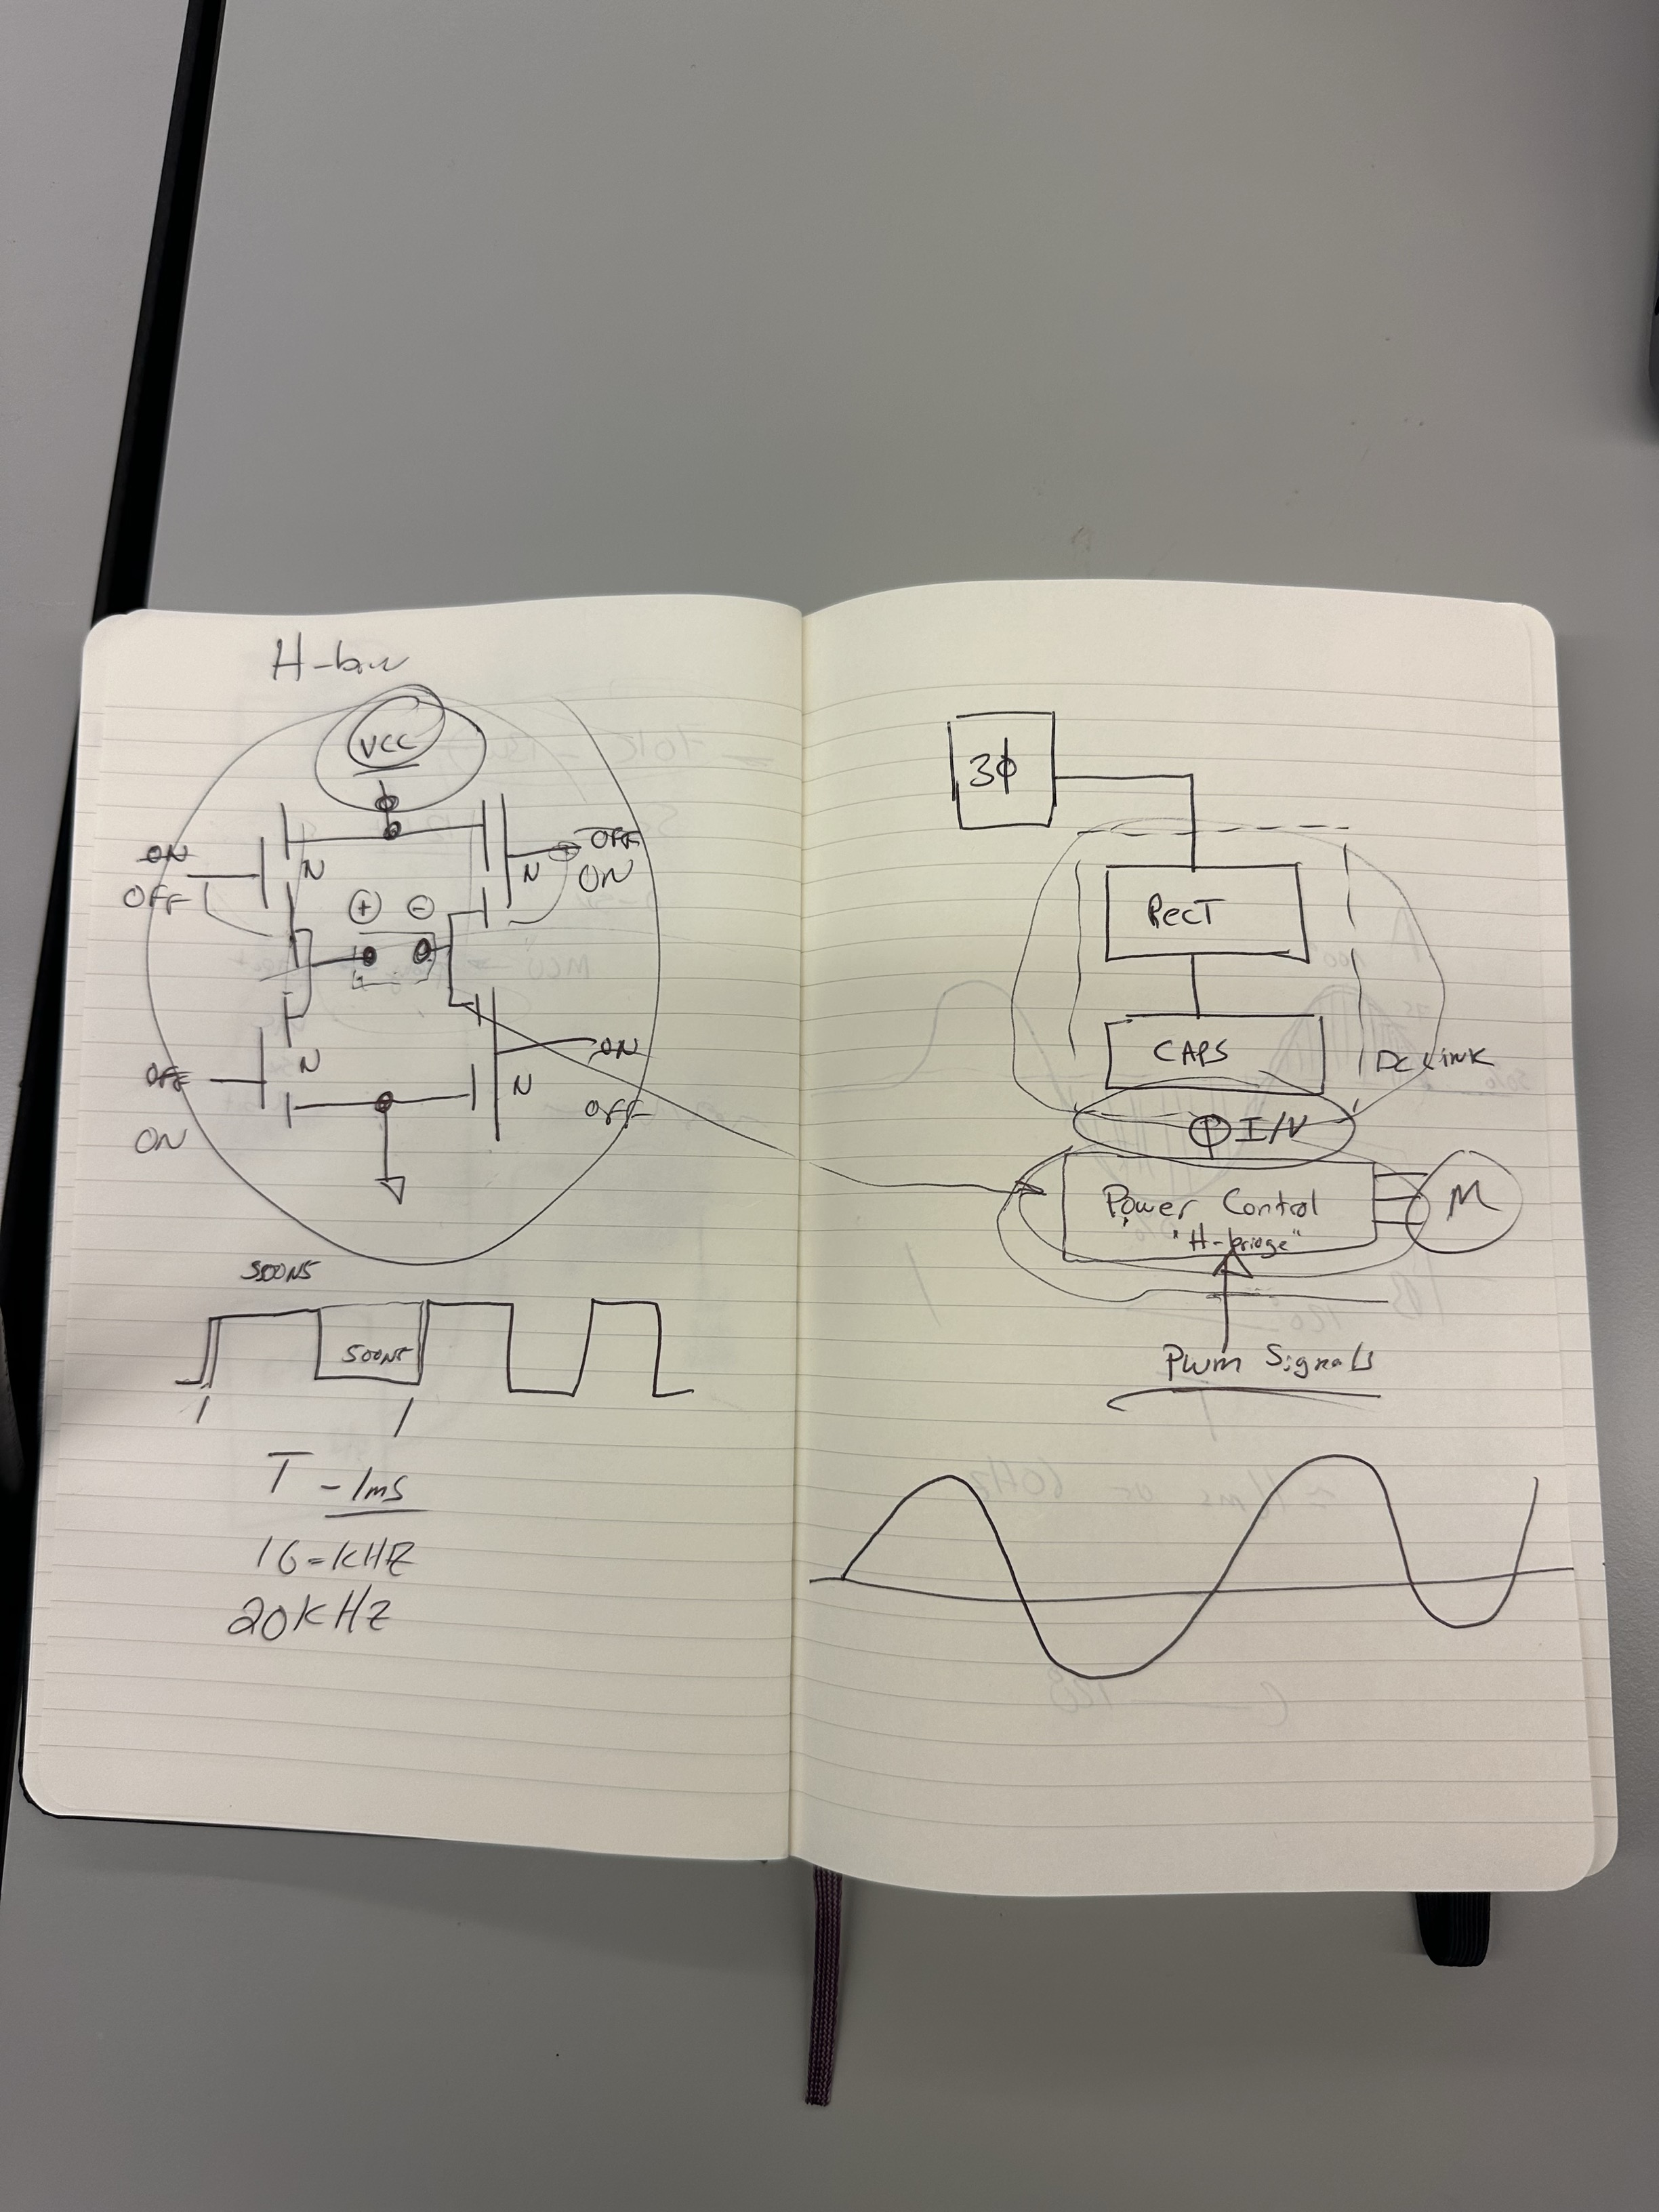 H-
VCC
ON
OFF
N
N
OFF
ON
+ -
OFF
ON
N
N
ON
OFF
500NS
500NS
T - 1ms
16-KHZ
20KHz
3ϕ
RecT
CAPS
DC LINK
I/V
Power Control
"H-bridge"
M
PWM Signals